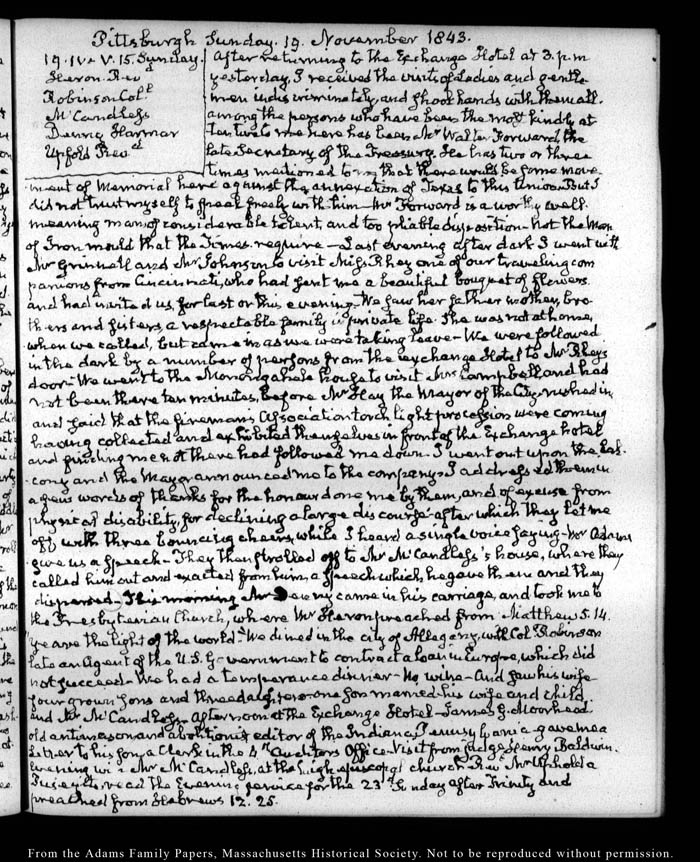 Pittsburgh Sunday. 19. November 1843.
19. IV. V. 15. Sunday.
Heron Revd
Robinson Colo
McCandless
Denny Harmar
Upfold Revd
After returning to the Exchange Hotel at 3. p.m
yesterday, I received the visits of Ladies and gentle-
men indiscriminately, and shook hands with them all.
among the persons who have been the most kindly at
tentive to me here has been Mr Walter Forward, the
late Secretary of the Treasury. He has two or three
times mentioned to me that there would be some move-
ment of Memorial here against the annexation of Texas to this Union. But I
did not trust myself to speak freely with him. Mr Forward is a worthy well
meaning man of considerable talent, and too pliable disposition. Not the man
of Iron mould that the Times require. Last evening after dark I went with
Mr Grinnell and Mr Johnson to visit Miss Rhey one of our traveling com
panions from Cincinnati, who had sent me a beautiful bouquet of flowers.
and had invited us, for last or this evening. We saw her father mother, bro-
thers and sisters, a respectable family in private life. She was not at home,
when we called, but came in as we were taking leave. We were followed
in the dark by a number of persons from the exchange Hotel to Mr Rheys
door. We went to the Monongahela house to visit Mrs Campbell, and had
not been there ten minutes, before Mr Hay the Mayor of the City, rushed in,
and said that the fireman's Association torch light procession were coming
having collected and exhibited themselves in front of the Exchange hotel
and finding me not there had followed me down. I went out upon the bal-
cony and the Mayor announced me to the company. I addressed them in
a few words of thanks for the honour done me by them, and of excuse from
physical disability, for declining a large discourse after which they let me
off with three bouncing cheers, while I heard a single voice saying. Mr Adams
give us a speech. They then strolled off to Mr McCandless's house, where they
called him out and exacted from him, a speech which, he gave them and they
dispersed. This morning Mr Denny came in his carriage, and took me to
the Presbyterian Church, where Mr Heron preached from Matthew 5. 14.
"Ye are the light of the world." We dined in the city of Allegany, with Colo Robinson
late an Agent of the U.S. Government to contract a loan in Europe, which did
not succeed. We had a temperance dinner. No wine. And saw his wife
four grown sons and three daughters. one son married his wife and child
and Mr McCandless. Afternoon at the Exchange Hotel. James G. Moorhead
old antimason and abolition editor of the Indiana, Pennsylvania gave me a
Letter to his son, a Clerk in the 4th Auditors Office. Visit from Judge Henry Baldwin.
Evening with Mr McCandless, at the high episcopal church. Revd Mr Upfold a
Puseyite, read the Evening service for the 23d Sunday after Trinity and
preached from Hebrews 12. 25.
From the Adams Family Papers, Massachusetts Historical Society. Not to be reproduced without permission.